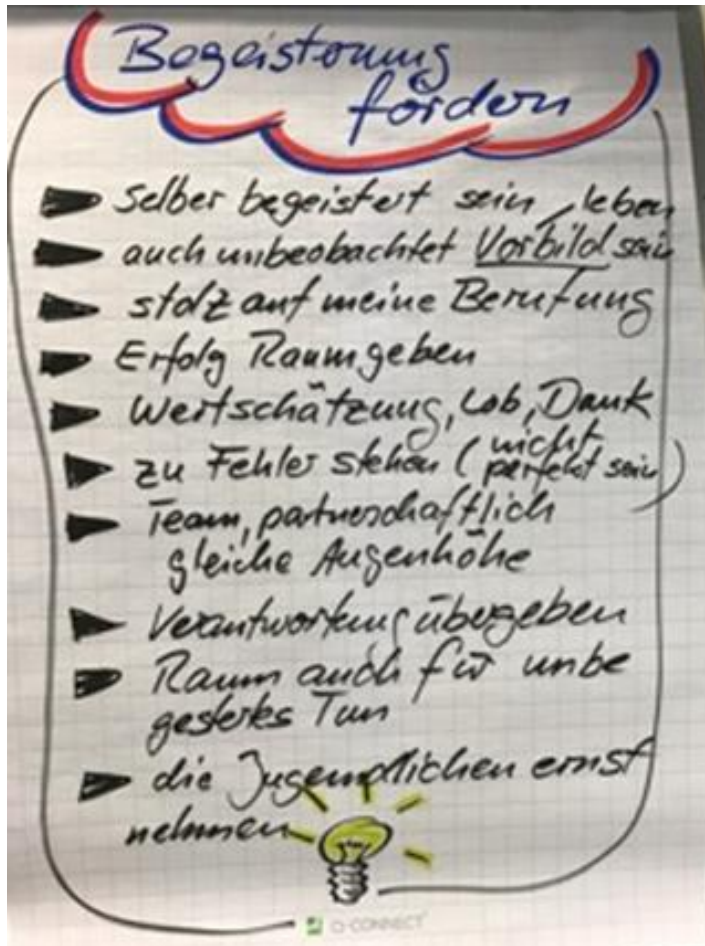 Begeisterung
fördern
Selber begeistert sein, leben
auch unbeobachtet Vorbild sein
stolz auf meine Berufung
Erfolg Raum geben
Wertschätzung, Lob, Dank
zu Fehler stehen (nicht perfekt sein)
Team, partnerschaftlich
gleiche Augenhöhe
Verantwortung übergeben
Raum auch für unbe
Tun
die Jugendlichen ernst
nehmen
Q-CONNECT